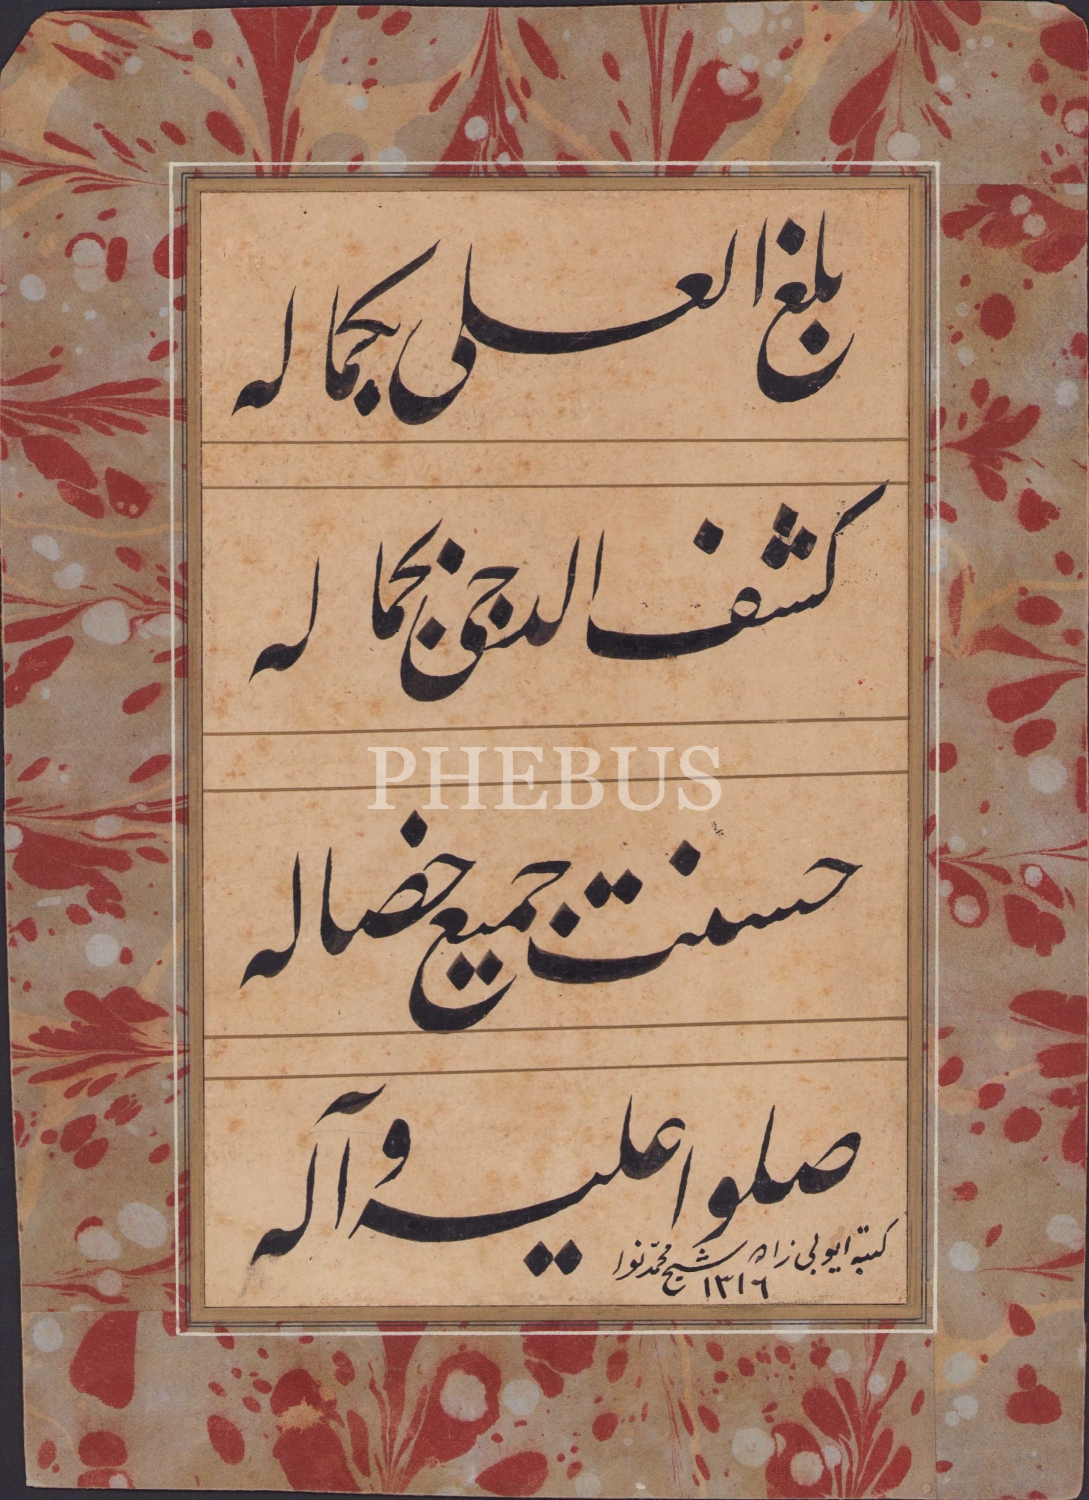 بلغ العلى بكماله
كشف الدجى بجماله
PHEBUS
حسنت جميع خصاله
صلوا عليه وآله
كتبه ايوبى زاده شيخ محمّد نوا
١٣١٦